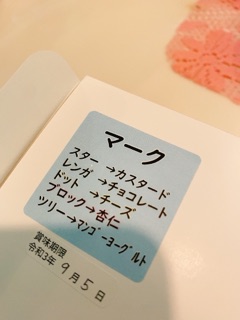 マーク
スター →カスタード
レンガ →チョコレート
ドット →チーズ
ブロック→杏仁
ツリー→マンゴーヨーグルト
賞味期限
令和3年 9月5日